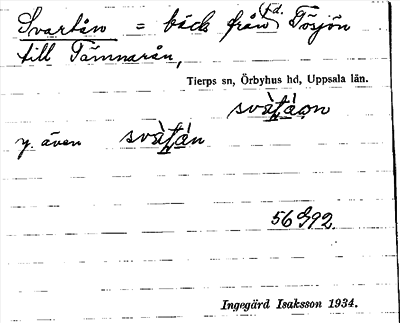 Svartån = bäck från f.d. Tösjön
till Tämnarån,
Tierps sn, Örbyhus hd, Uppsala län.
svàt́áɷn
y. även svàt́án
56 G92.
Ingegärd Isaksson 1934.